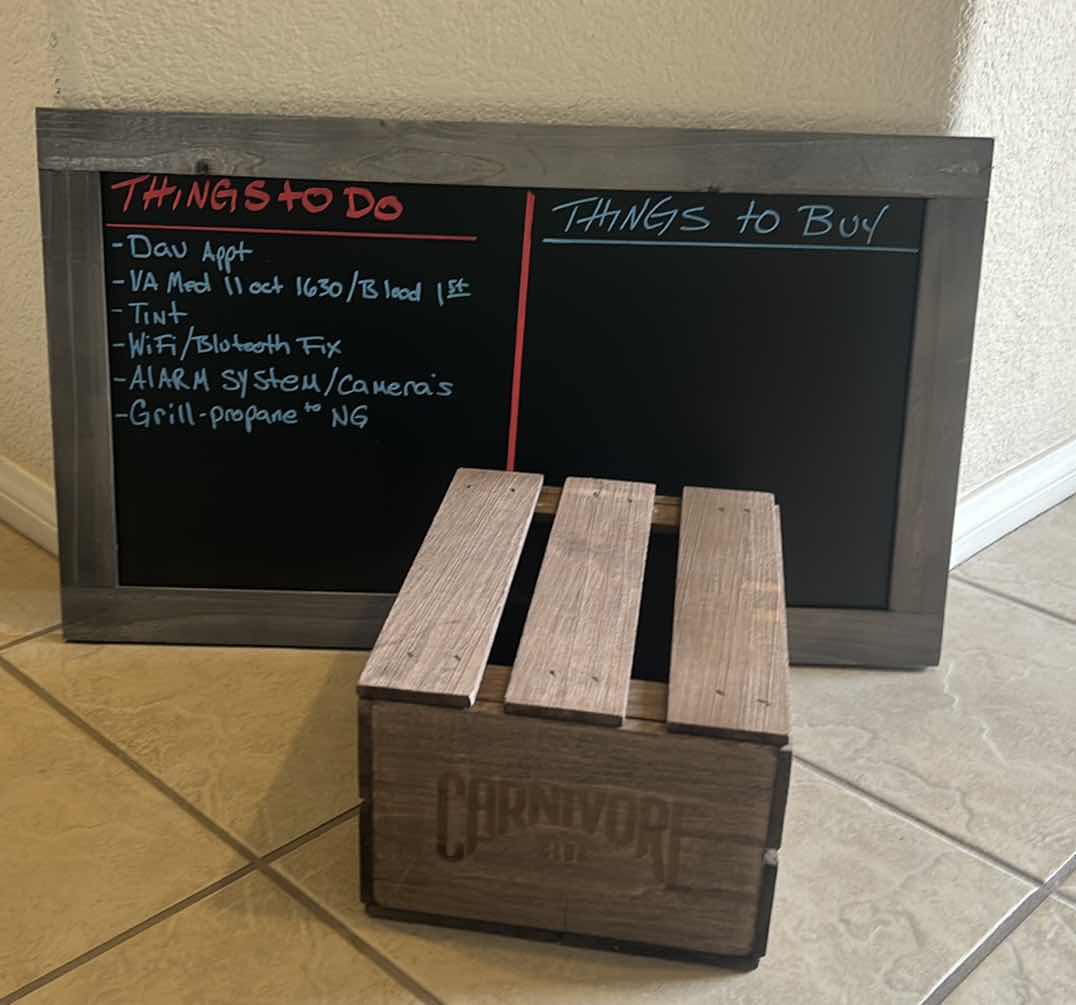 THINGS to DO
THINGS to BUY
-Dav Appt
-VA Med 11 oct 1630/Blood 1st
-Tint
-WiFi/Blutooth Fix
-AlARM SyStem/Camera's
-Grill-propane to NG
CARNIVORE